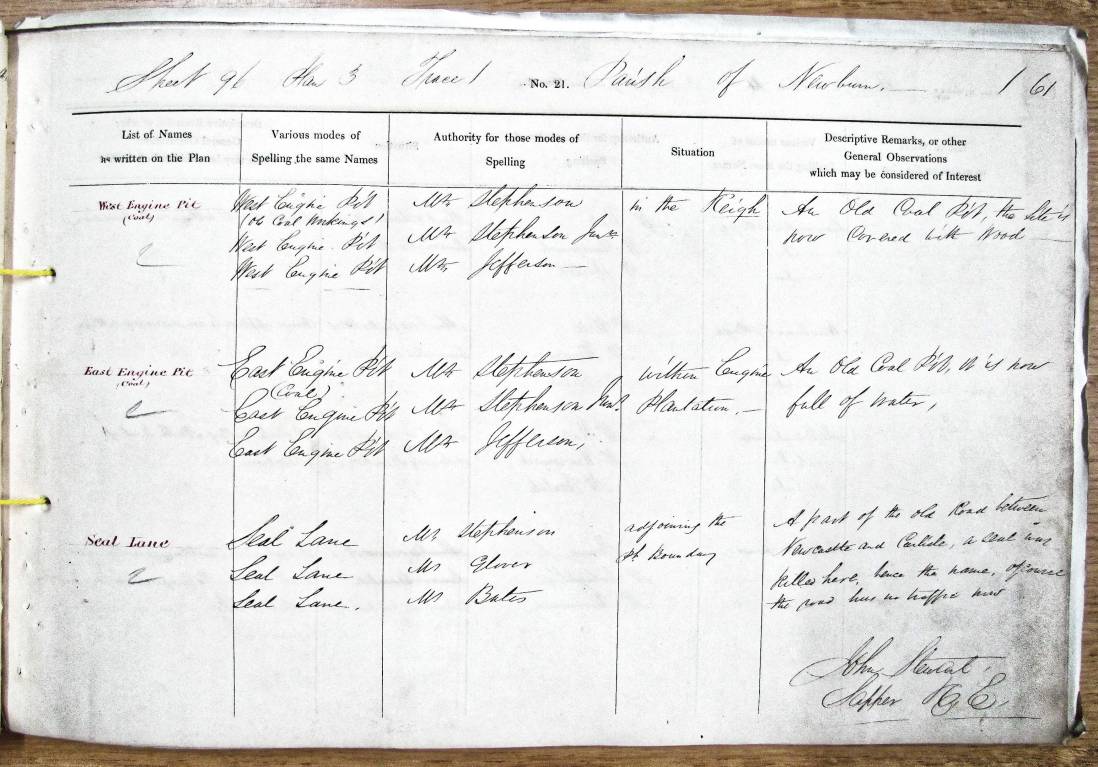 Sheet 96 Plan 3 Trace 1 No. 21. Parish of Newburn. 1 61
List of Names
as written on the Plan
Various modes of
Spelling the same Names
Authority for those modes of
Spelling
Situation
Descriptive Remarks, or other
General Observations
which may be considered of Interest
West Engine Pit
(Coal)
West Engine Pit
(Old Coal Workings)
West Engine Pit
West Engine Pit
Mr Stephenson
Mr Stephenson Junr
Mr Jefferson
in the Reigh
An Old Coal Pit, the Site is
now Covered with Wood
East Engine Pit
(Coal)
East Engine Pit
(Coal)
East Engine Pit
East Engine Pit
Mr Stephenson
Mr Stephenson Junr
Mr Jefferson,
within Engine
Plantation.
An Old Coal Pit, it is now
full of water,
Seal Lane
Seal Lane
Seal Lane
Seal Lane.
Mr Stephenson
Mr Glover
Mr Bates
adjoining the
Ph. Boundary
A part of the old Road between
Newcastle and Carlisle, a seal was
killed here, hence the name, of course
the road has no traffic now
John Stewart
Sapper R E